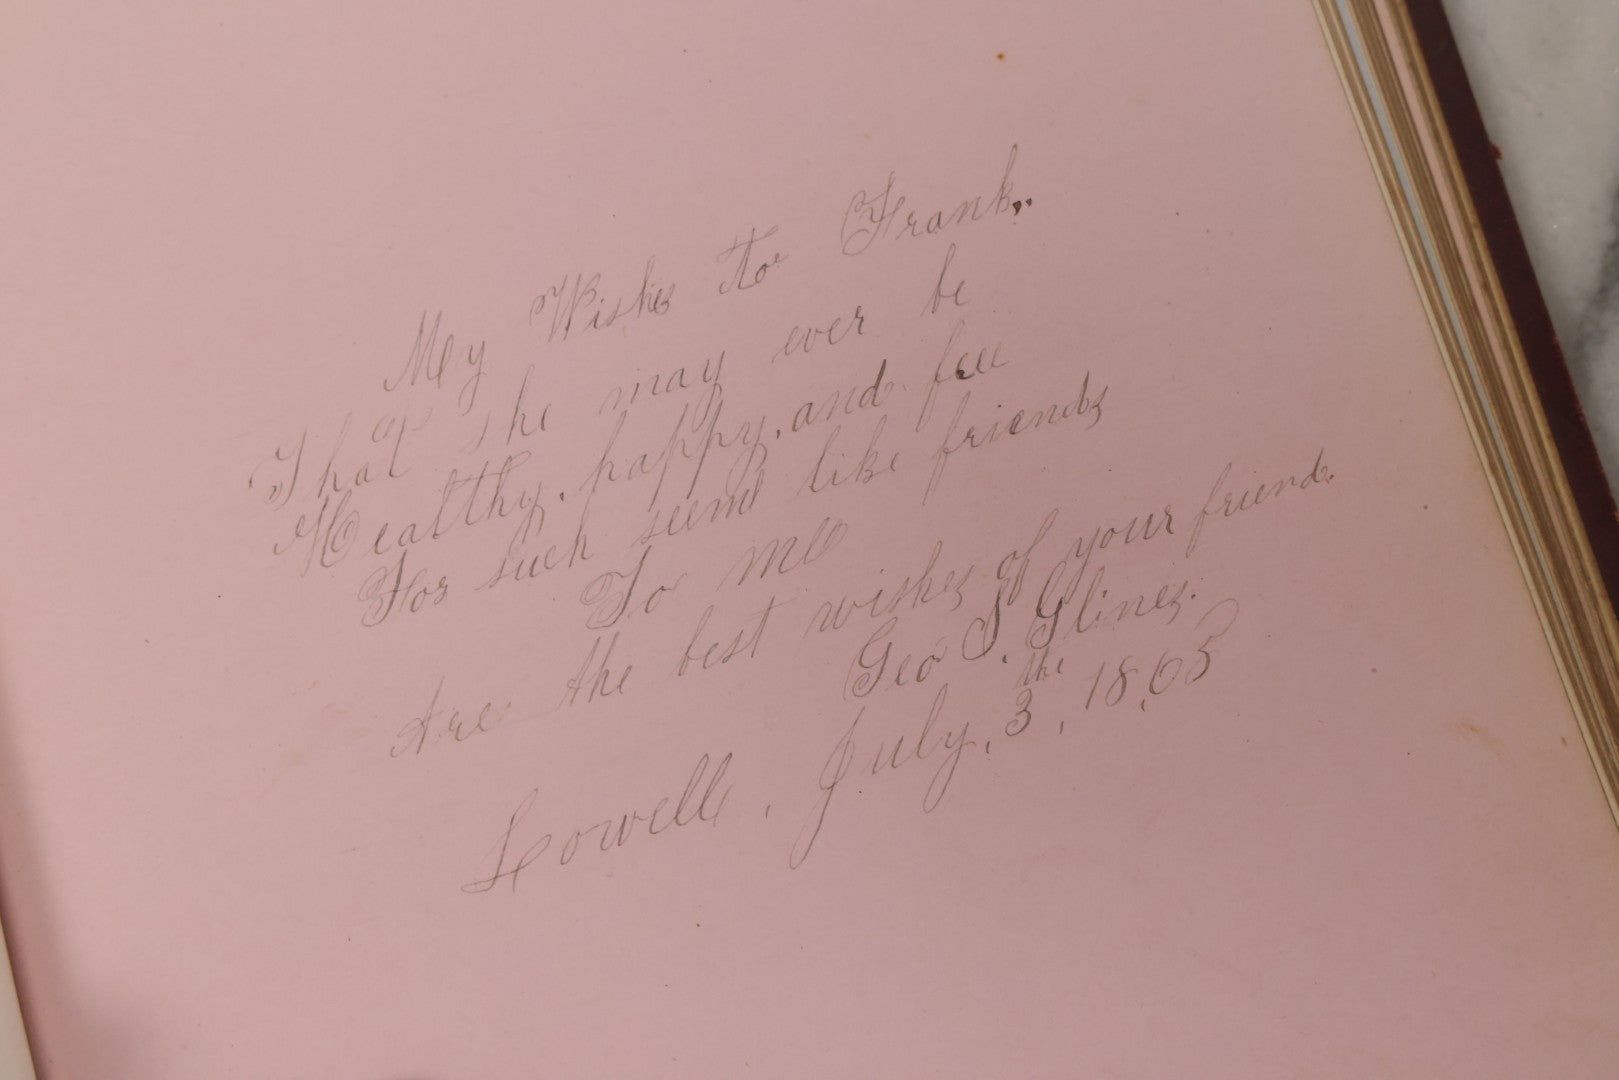 My Wishes to Frank,.
That she may ever be
Healthy, happy, and free
For such seem like friends
To me
Are the best wishes of your friend.
Geo S. Glines.
Lowell, July, 3, the, 1865